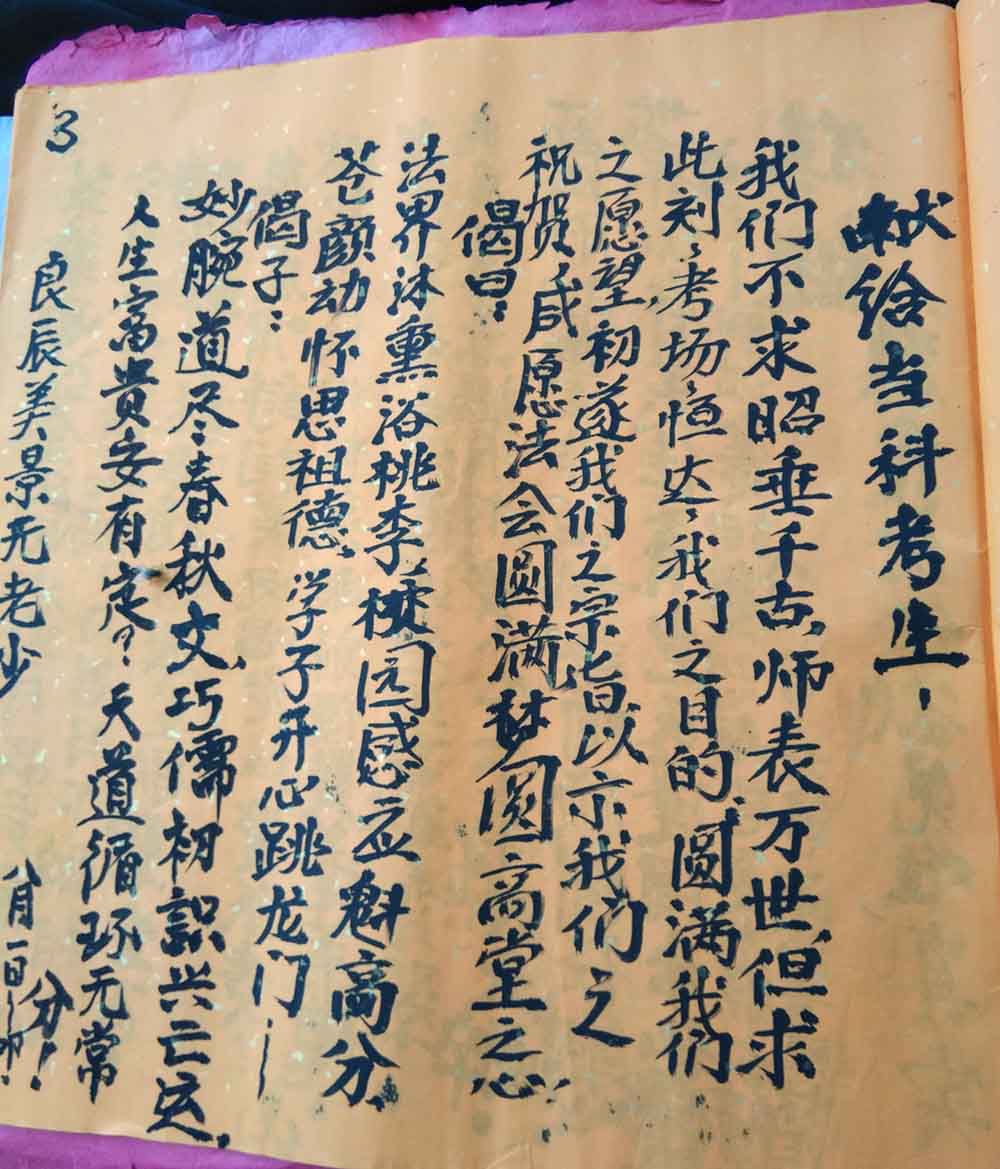 献给当科考生：
我们不求昭垂千古，师表万世，但求
此刻、考场、恒达、我们之目的，圆满我们
之愿望，初遂我们之宗旨，以示我们之
祝贺，咸愿法会圆满梦圆高堂之心，
偈曰：
法界沐熏浴桃李，园感应魁高分，
苍颜动怀思祖德，学子开心跳龙门——
偈子：
妙腕道尽春秋文，巧儒初识兴亡运，
人生富贵安有定？天道循环无常
分！
良辰美景无老少
八月一日
3